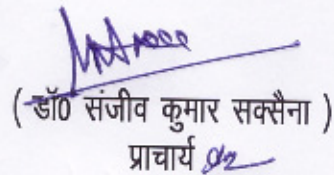 ( डॉ0 संजीव कुमार सक्सैना )
प्राचार्य